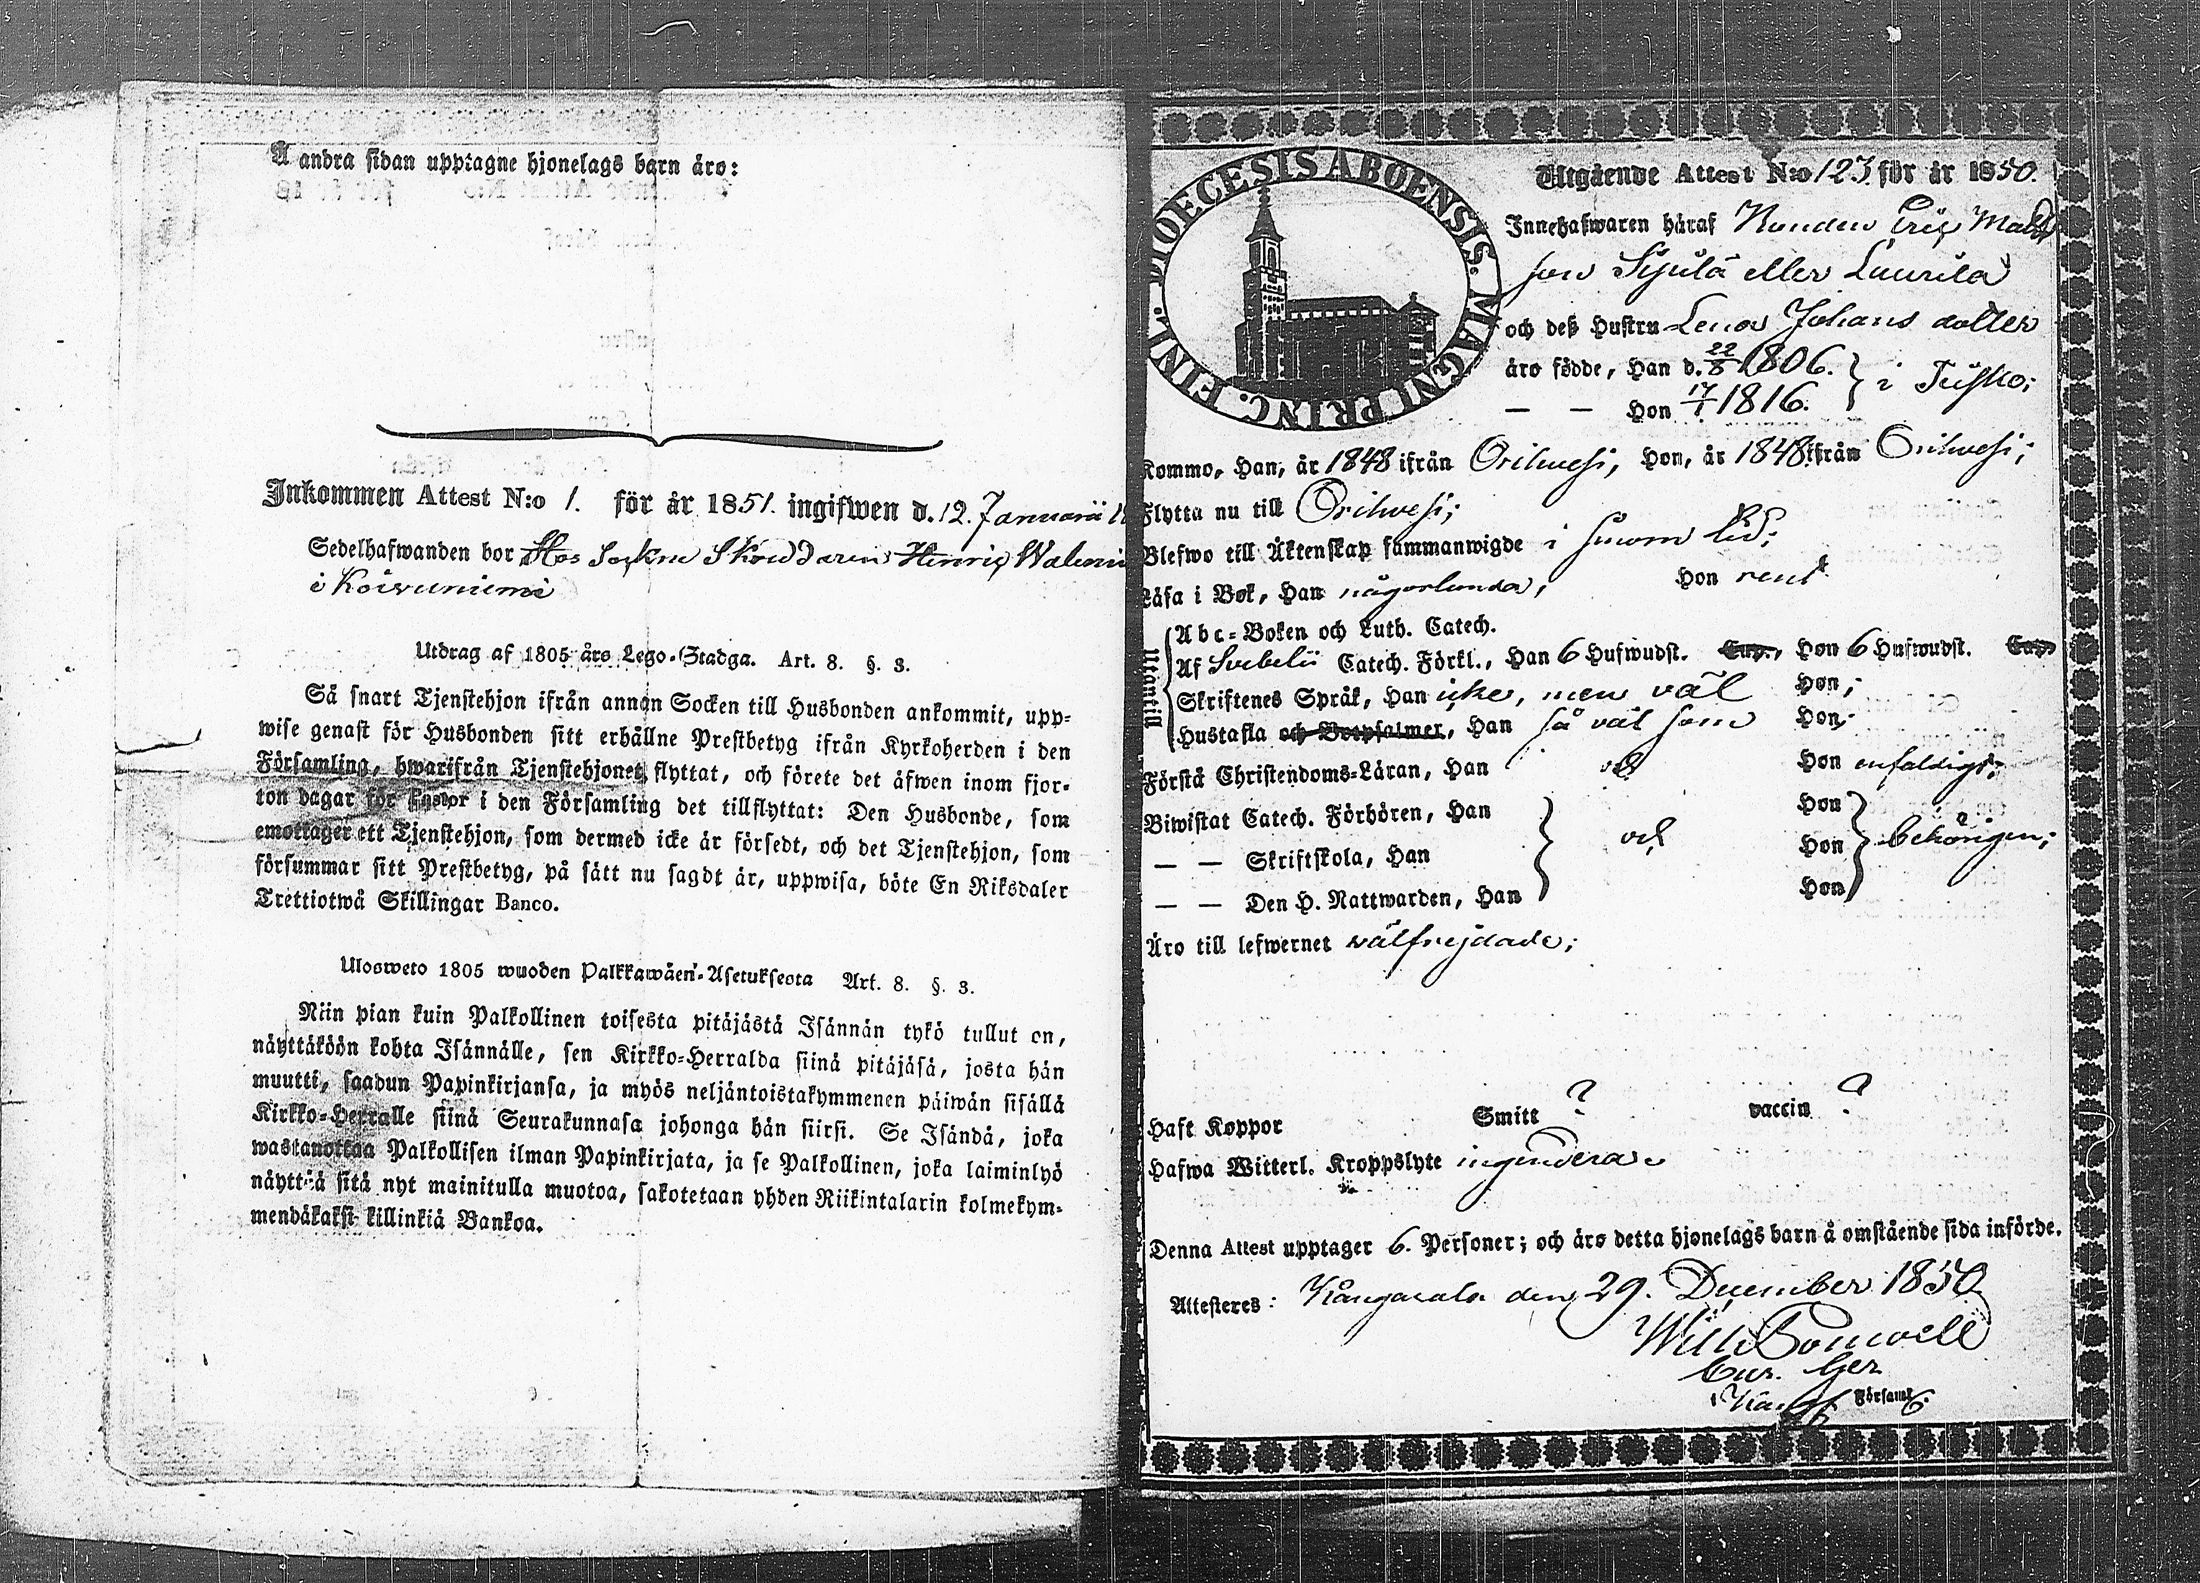 Å andra sidan upptagne hjonelags barn äro:
Inkommen Attest N:o 1. för år 1851. ingifwen d. 12. Januarii
Sedelhafwanden bor Hos Sockne Skräddaren Henric
i Koivuniemi
Utdrag af 1805 års Lego-Stadga. Art. 8. §. 3.
Så snart Tjenstehjon ifrån annan Socken till Husbonden ankommit, upp-
wise genast för Husbonden sitt erhållne Prestbetyg ifrån Kyrkoherden i den
Församling, hwarifrån Tjenstehjonet flyttat, och förete det äfwen inom fjor-
ton dagar för Pastor i den Församling det tillflyttat: Den Husbonde, som
emottager ett Tjenstehjon, som dermed icke är försedt, och det Tjenstehjon, som
försummar sitt Prestbetyg, på sätt nu sagdt är, uppwisa, böte En Riksdaler
Trettiotwå Skillingar Banco.
Ulosweto 1805 wuoden Palkkawäen-Asetuksesta Art. 8. §. 3.
Niin pian kuin Palkollinen toisesta pitäjästä Isännän tykö tullut on,
näyttäköön kohta Isännälle, sen Kirkko-Herralda siinä pitäjäsä, josta hän
muutti, saadun Papinkirjansa, ja myös neljäntoistakymmenen päiwän sisällä
Kirkko-Herralle siinä Seurakunnasa johonga hän siirsi. Se Isändä, joka
wastanottaa Palkollisen ilman Papinkirjata, ja se Palkollinen, joka laiminlyö
näyttää sitä nyt mainitulla muotoa, sakotetaan yhden Riikintalarin kolmekym-
mendäkaksi killinkiä Bankoa.
DIOECESIS ABOENSIS. MAGNI PRINC. FINL.
Utgående Attest N:o 123. för år 1850.
Innehafwaren häraf Bonden Eric Matts
son Sipilä eller Laurila
och deß Hustru Lena Johans dotter
äro födde, Han d. 22/8 1806. } i
— — Hon 17/1 1816.
Kommo, Han, år 1848 ifrån Orihvesi, Hon, år 1848. ifrån Orihvesi;
Flytta nu till Orihvesi;
Blefwo till Äktenskap sammanwigde i
Läsa i Bok, Han någorlunda, Hon rent
Utantill
Abc-Boken och Luth. Catech.
Af Svebelii Catech. Förkl., Han 6 Hufwudst. Cap., Hon 6 Hufwudst. Cap.
Skriftenes Språk, Han icke, men väl Hon;
Hustafla och Botpsalmer, Han så väl som Hon;
Förstå Christendoms-Läran, Han och Hon enfaldigt;
Biwistat Catech. Förhören, Han Hon
— — Skriftskola, Han och Hon behörigen;
— — Den H. Nattwarden, Han Hon
Äro till lefwernet wälfrejdade;
Haft Koppor Smitt ? vaccin ?
Hafwa Witterl. Kroppslyte ingendera.
Denna Attest upptager 6. Personer; och äro detta hjonelags barn å omstående sida införde.
Attesteres: Kångasala den 29. December 1850
Församl.